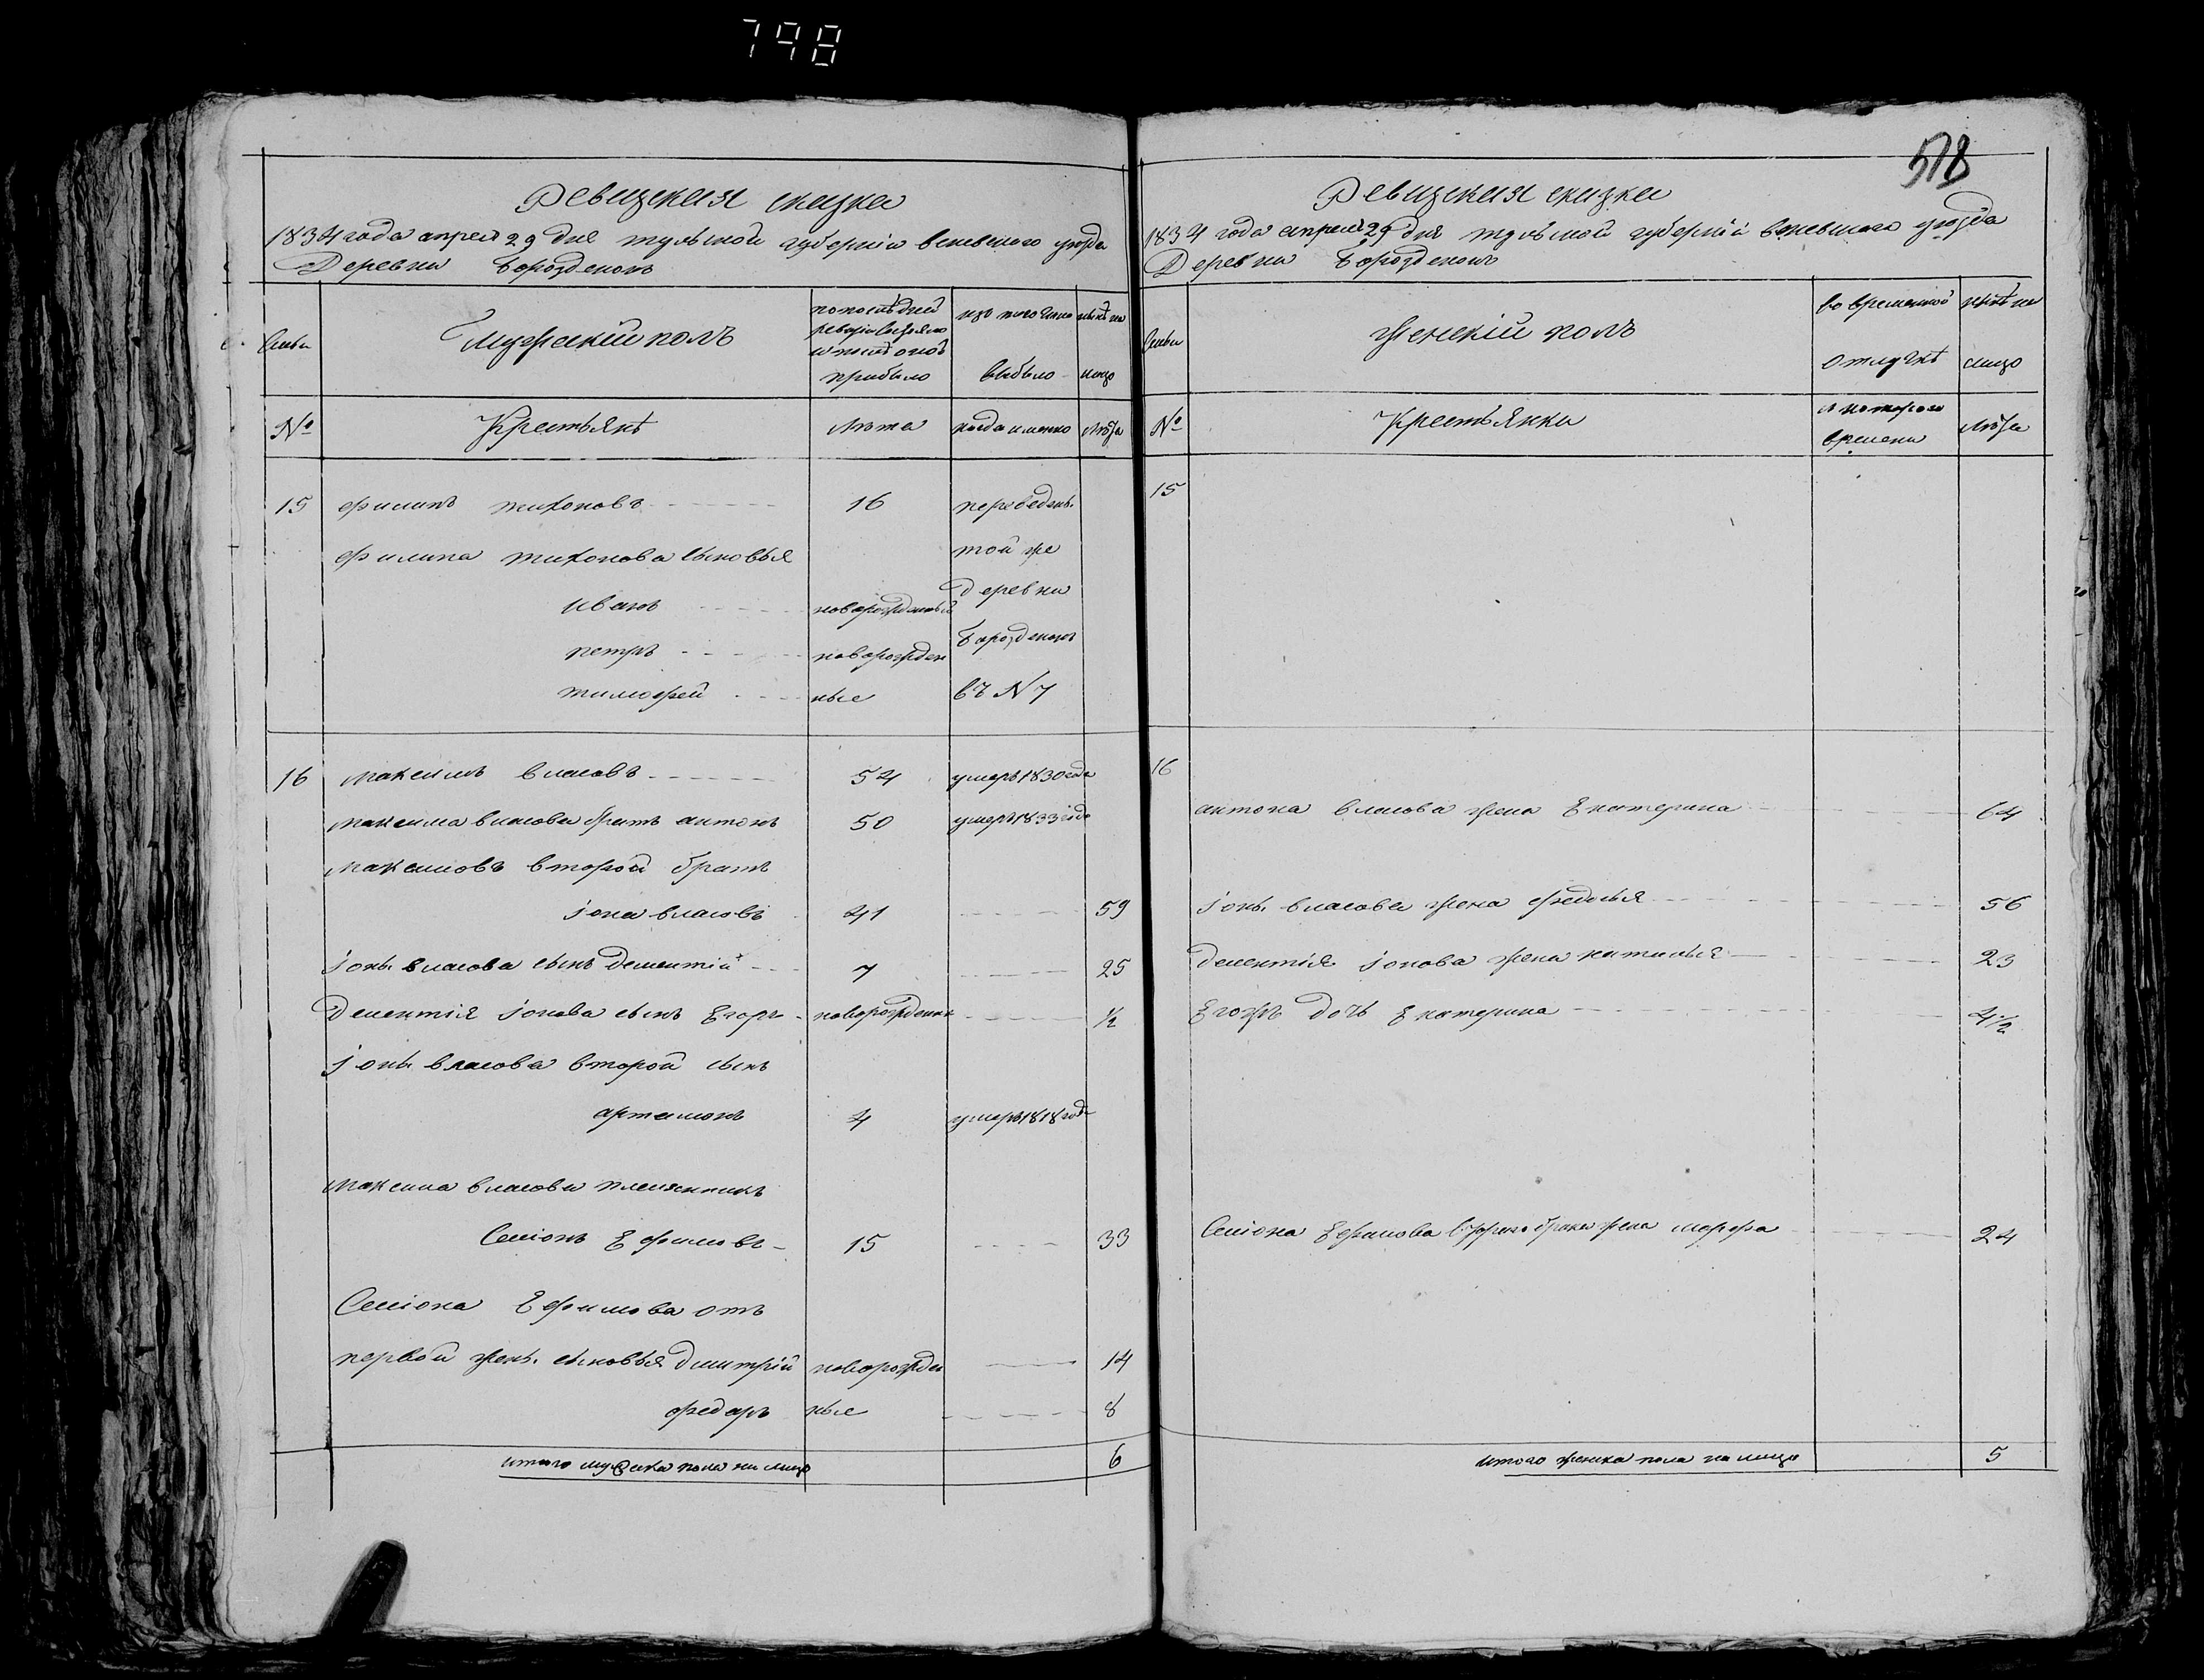 798
578
Ревизская сказка
1834 года апреля 29 дня тульской губернiи веневского уезда
Деревни Борозденок
Семьи
Мужескiй полъ
по последней ревизiи состояло и после оной прибыло
изъ того числа выбыло
ныне на лицо
№
Крестьяне
Лета
когда именно
Лета
15 филипъ тихоновъ 16 переведенъ
филипа тихонова сыновья той же
иванъ новорожденный деревни
петръ новорожден Борозденокъ
тимофей ные въ N 7
16 максимъ власовъ 54 умеръ 1830 года
максима власова братъ антонъ 50 умеръ 1833 года
максимовъ второй братъ
iона власовъ 41 59
iоны власова сынъ дементiй 7 25
Дементiя iонова сынъ Егоръ новорожденный ½
iоны власова второй сынъ
артамонъ 4 умеръ 1818 года
максима власова племянникъ
Семiонъ Ефимовъ 15 33
Семiона Ефимова отъ
первой жены сыновья дмитрiй новорожден 14
федоръ ные 8
итого мужеска пола на лицо 6
Ревизская сказка
1834 года апреля 29 дня тульской губернiи веневского уезда
Деревни Борозденокъ
Семьи
женскiй полъ
во временной отлучке
ныне на лицо
№
Крестьянки
с котораго времени
Лета
15
16
антона власова жена Екатерина 64
iоны власова жена федосья 56
дементiя iонова жена наталья 23
Егожъ дочь Екатерина 4½
Семiона Ефимова жена марфа 24
итого женска пола на лицо 5